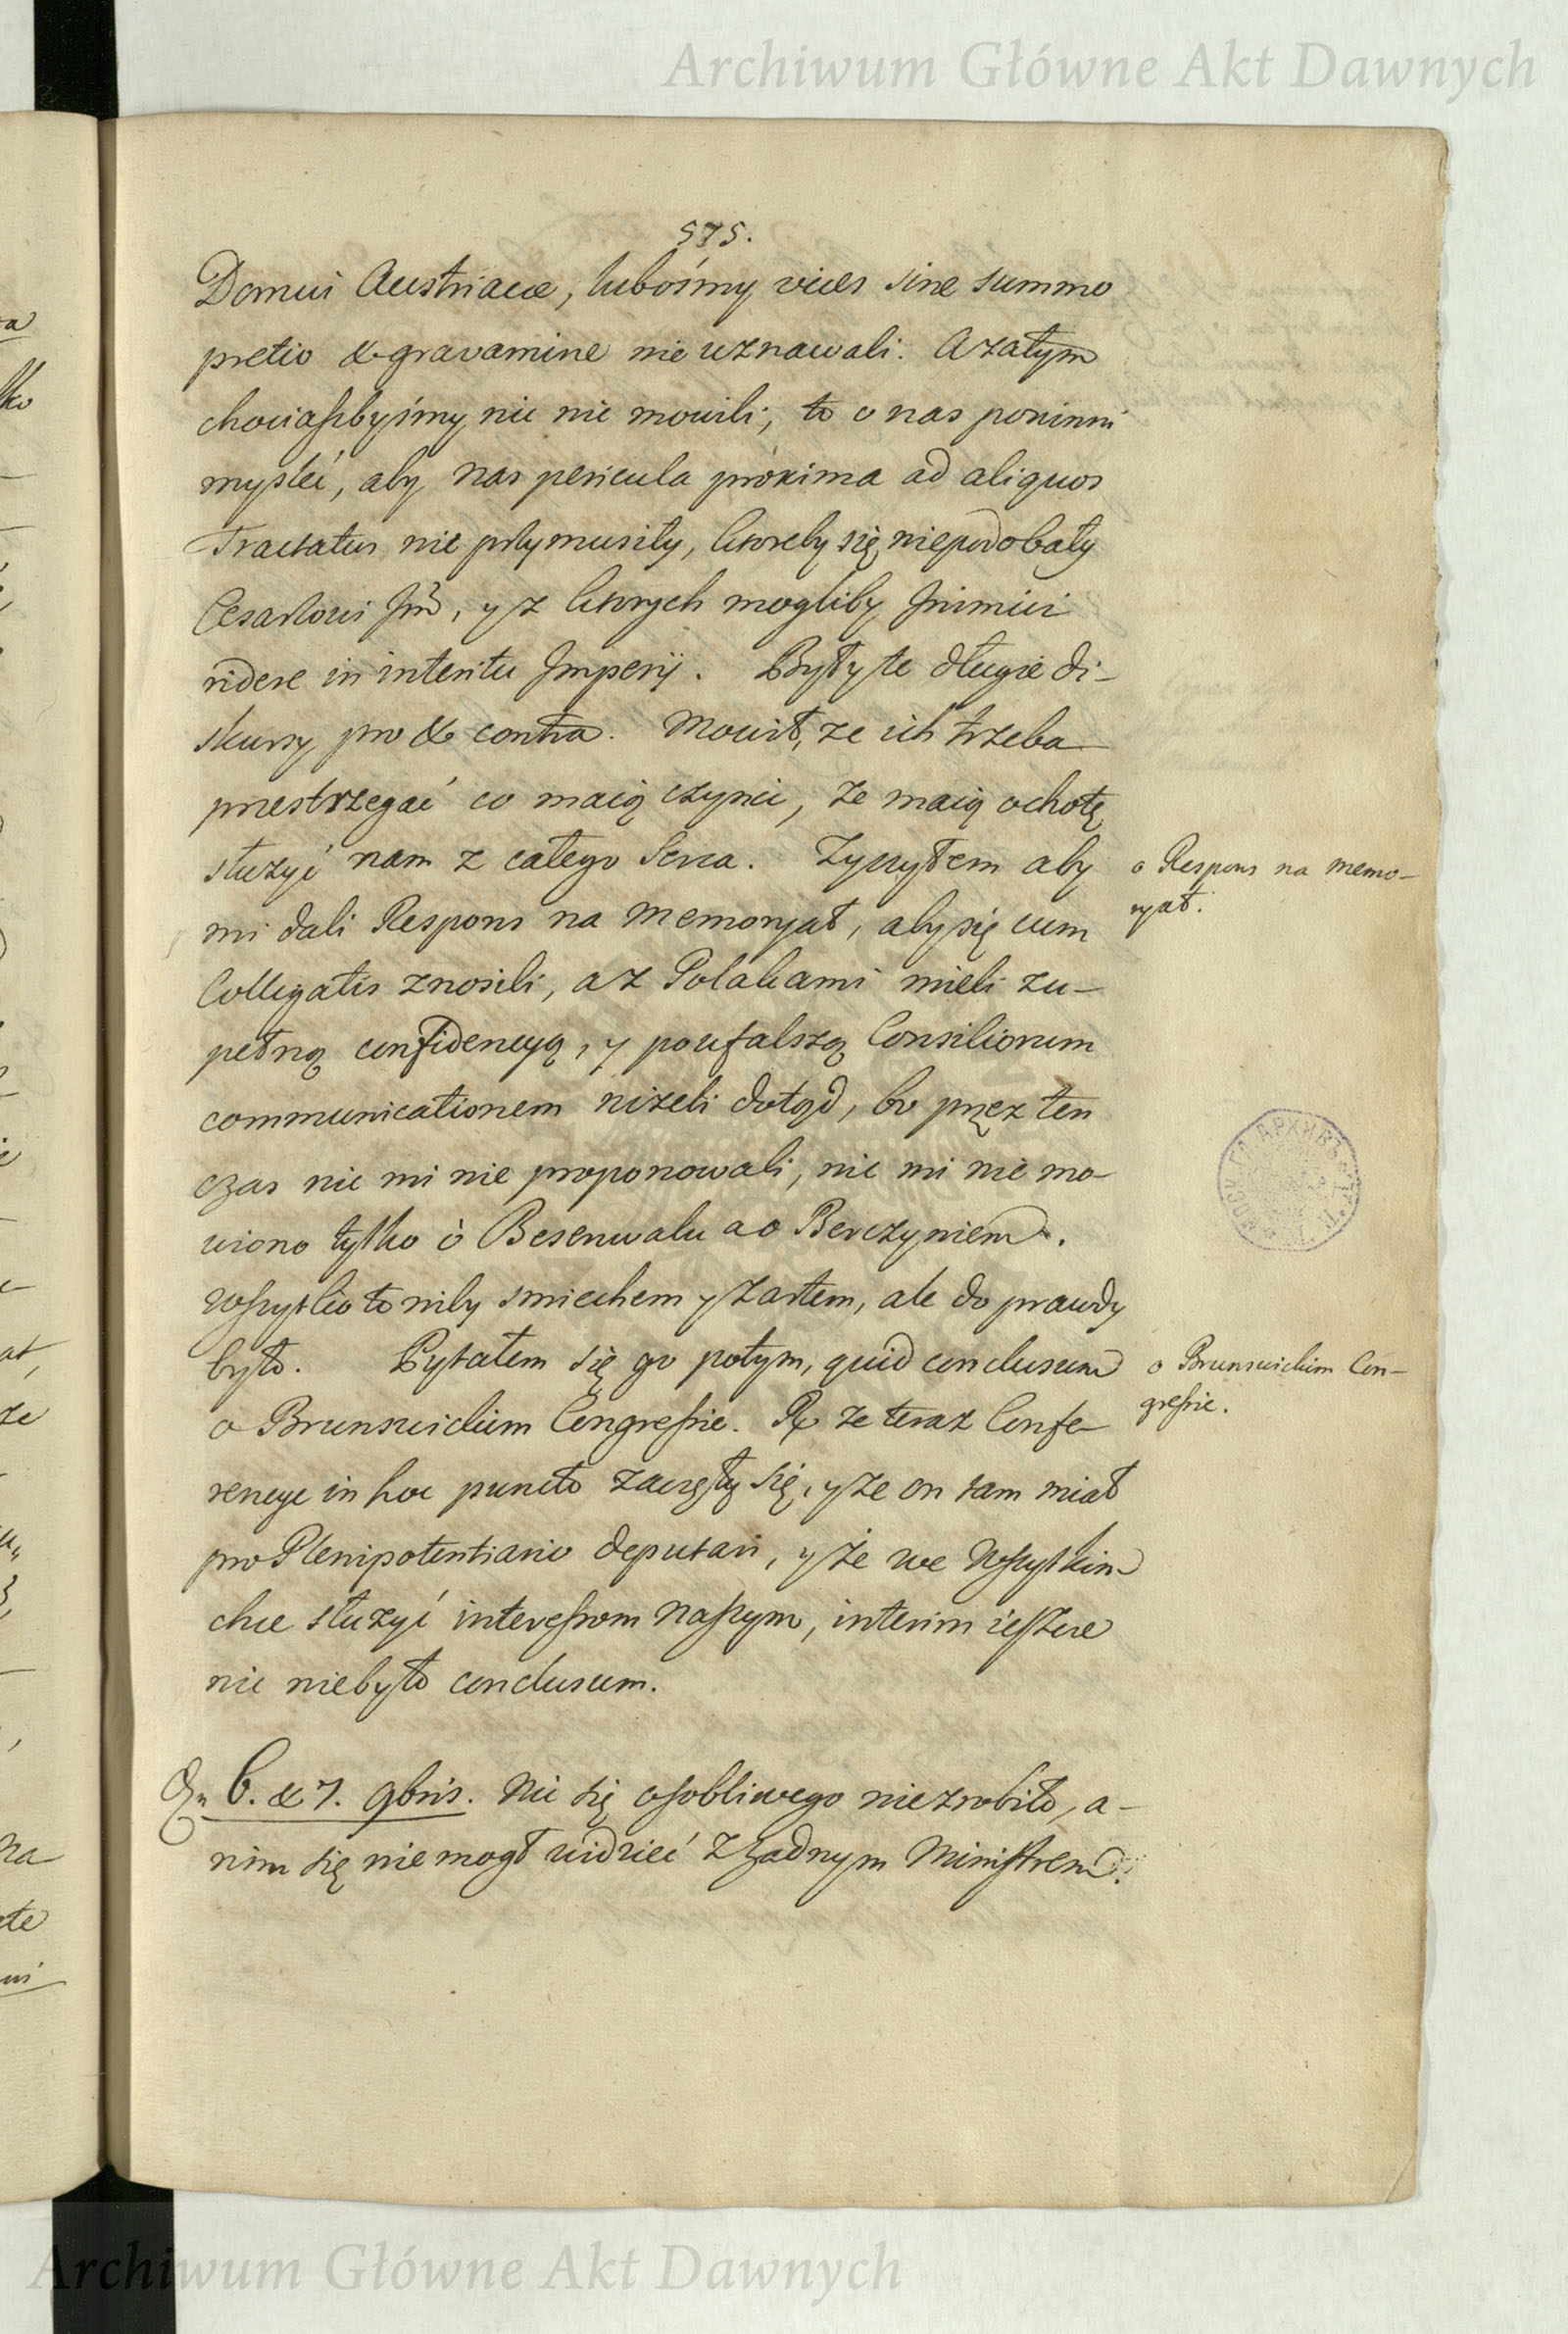 Archiwum Główne Akt Dawnych
575.
Domui Austriacæ, lubośmy vices sine summo
pretio & gravamine nie uznawali. A zatym
chociaszbyśmy nic nie mowili, to o nas powinni
myslić, aby nas pericula proxima ad aliquos
Tractatus nie przymusiły, ktoreby się niepodobały
Cesarzowi Jm̃, y z ktorych mogliby Inimici
ridere in interitu Imperij. Były te długie di-
skursy pro & contra. Mowił, ze ich trzeba
przestrzegać co maią czynić, ze maią ochotę
służyć nam z całego Serca. Zyczyłem aby
o Respons na memo-
ryał.
mi dali Respons na Memoryał, aby się cum
Collegatis znosili, a z Polakami mieli zu-
pełną confidencyą, y poufalszą Consiliorum
communicationem niżeli dotąd, bo przez ten
czas nic mi nie proponowali, nic mi nie mo-
wiono tylko o Besenwalu a o Berczyniem.
Wszystko to niby smiechem y żartem, ale do prawdy
było. Pytałem się go potym, quid conclusum
o Brunsuickim Con-
gressie.
o Brunsuickim Congressie. Rx ze teraz Confe-
rencye in hoc puncto zaczęły się, y że on tam miał
pro Plenipotentiario deputari, y że we Wszystkim
chce służyć interessom naszym, interim ieszcze
nic niebyło conclusum.
Dn 6. & 7. 9bris. Nic się osobliwego niezrobiło, a-
nim się nie mogł widzieć z żadnym Ministrem.
Archiwum Główne Akt Dawnych